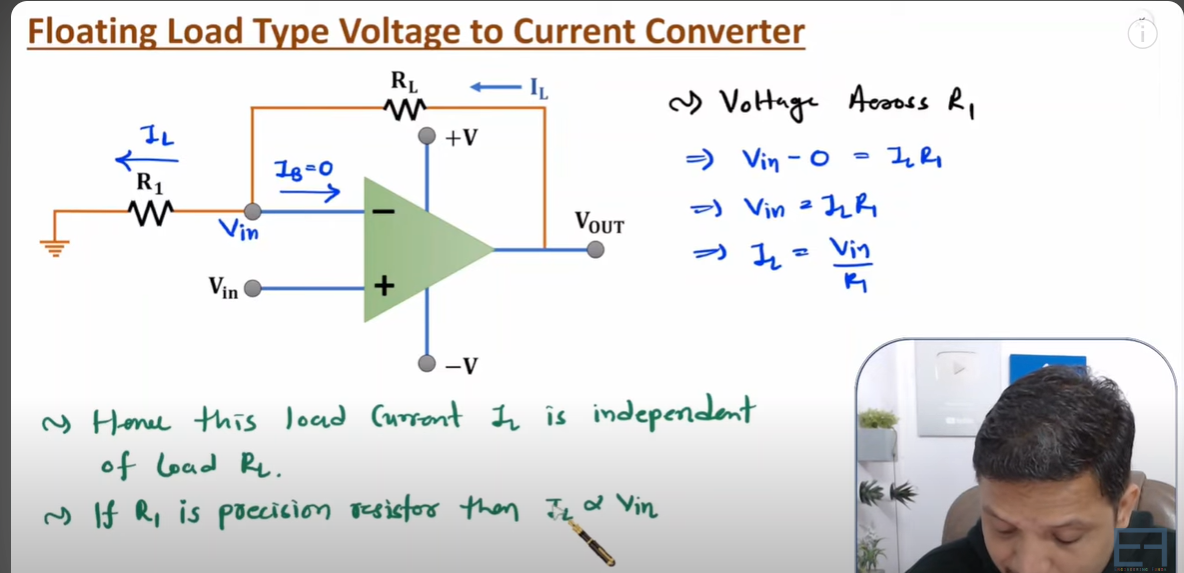 Floating Load Type Voltage to Current Converter
R_L
← I_L
+V
I_L
R_1
I_B=0
−
Vin
V_OUT
V_in
+
−V
~) Voltage Across R_1
⇒ Vin - 0 = I_L R_1
⇒ Vin = I_L R_1
⇒ I_L = Vin
R_1
~) Hence this load Current I_L is independent
of load R_L.
~) If R_1 is precision resistor then I_L ∝ Vin
i
EF